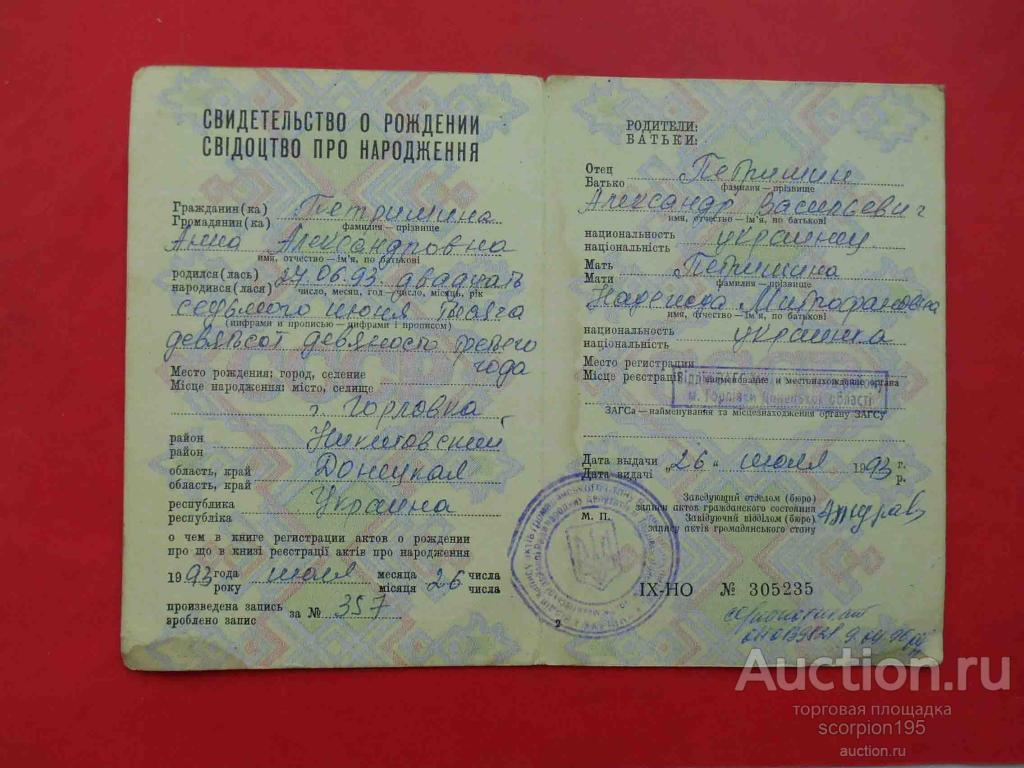 СВИДЕТЕЛЬСТВО О РОЖДЕНИИ
СВІДОЦТВО ПРО НАРОДЖЕННЯ
Гражданин(ка) Петришина
Громадянин(ка) фамилия — прізвище
Анна Александровна
имя, отчество — ім'я, по батькові
родился(лась) 27.06.93 двадцать
народився(лася) число, месяц, год — число, місяць, рік
седьмого июня тысяча
(цифрами и прописью — цифрами і прописом)
девятьсот девяносто третьего
года
Место рождения: город, селение
Місце народження: місто, селище
г. Горловка
район Никитовский
район
область, край Донецкая
область, край
республика Украина
республіка
о чем в книге регистрации актов о рождении
про що в книзі реєстрації актів про народження
1993 года июля месяца 26 числа
року місяця числа
произведена запись за № 357
зроблено запис
2
РОДИТЕЛИ:
БАТЬКИ:
Отец Петришин
Батько фамилия — прізвище
Александр Васильевич
имя, отчество — ім'я, по батькові
национальность украинец
національність
Мать Петришина
Мати фамилия — прізвище
Надежда Митрофановна
имя, отчество — ім'я, по батькові
национальность украинка
національність
Место регистрации
Місце реєстрації наименование и местонахождение органа
м. Горлівки Донецької області
ЗАГСа — найменування та місцезнаходження органу ЗАГСу
Дата выдачи "26" июля 1993 г.
Дата видачі р.
Заведующий отделом (бюро)
записи актов гражданского состояния
М. П. Завідуючий відділом (бюро)
запису актів громадянського стану
IX-НО № 305235
Auction.ru
торговая площадка
scorpion195
auction.ru